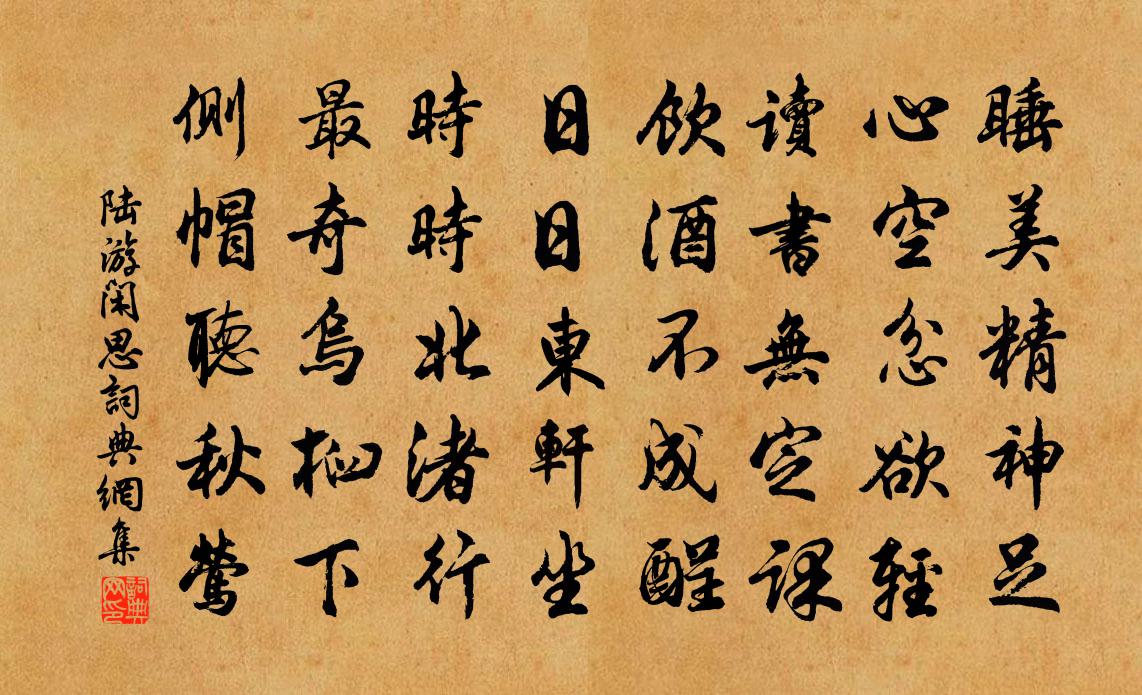 睡美精神足
心空忿欲輕
讀書無定課
飲酒不成酲
日日東軒坐
時時北渚行
最奇烏桕下
側帽聽秋鶯
陸游閑思詞典網集
詞典网印